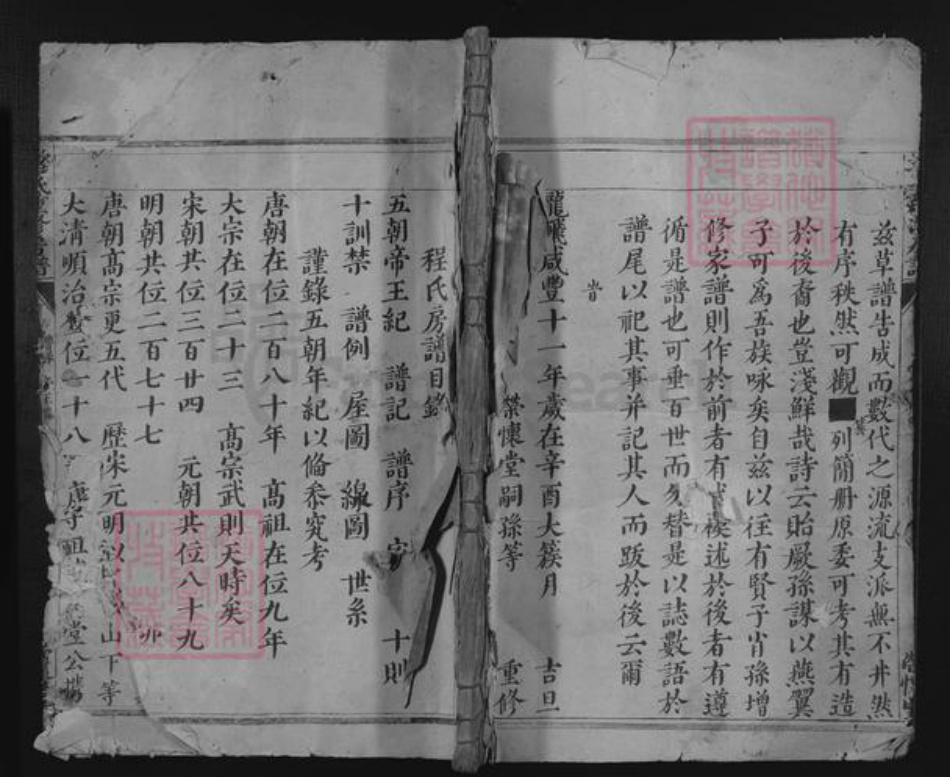 茲草譜告成而數代之源流支派無不井然
有序秩然可觀■列簡册原委可考其有造
於後裔也豈淺鮮哉詩云貽厥孫謀以燕翼
子可為吾族咏矣自茲以徃有賢子肖孫增
修家譜則作於前者有述於後者有遵
循是譜也可垂百世而久替是以誌數語於
譜尾以祀其事并記其人而跋於後云爾
旹
龍飛咸豐十一年歲在辛酉大簇月 吉旦
懷堂嗣孫等 重修
程氏房譜目錄
五朝帝王紀 譜記 譜序 家 十則
十訓禁 譜例 屋圖 線圖 世系
謹錄五朝年紀以俻叅究考
唐朝在位二百八十年 高祖在位九年
大宗在位二十三 高宗武則天時矣
宋朝共位三百廿四 元朝共位八十九
明朝共位二百七十七
唐朝高宗更五代 歷宋元明 山下等
大清順治 位一十八 堂公携